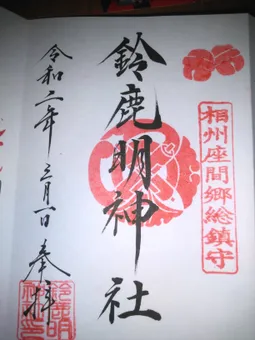 相州座間郷総鎮守
鈴鹿明神社
奉拝
令和二年三月一日
鈴鹿明神社之印